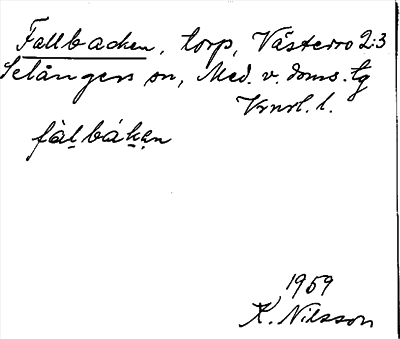 Fallbacken, torp, Västerro 2:3
Selångers sn, Med. v. doms. tg
Vnrl. l.
fàl̠bák̠ən
1959
K. Nilsson